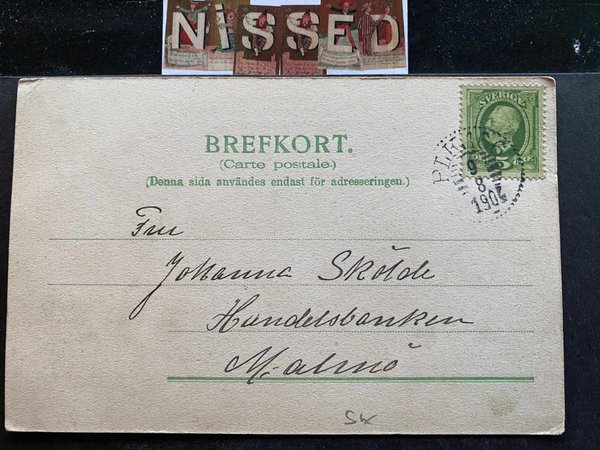 NiSSED
SVERIGE
BREFKORT.
(Carte postale.)
(Denna sida användes endast för adresseringen.)
8
1904
Fru
Johanna Skölde
Handelsbanken
Malmö